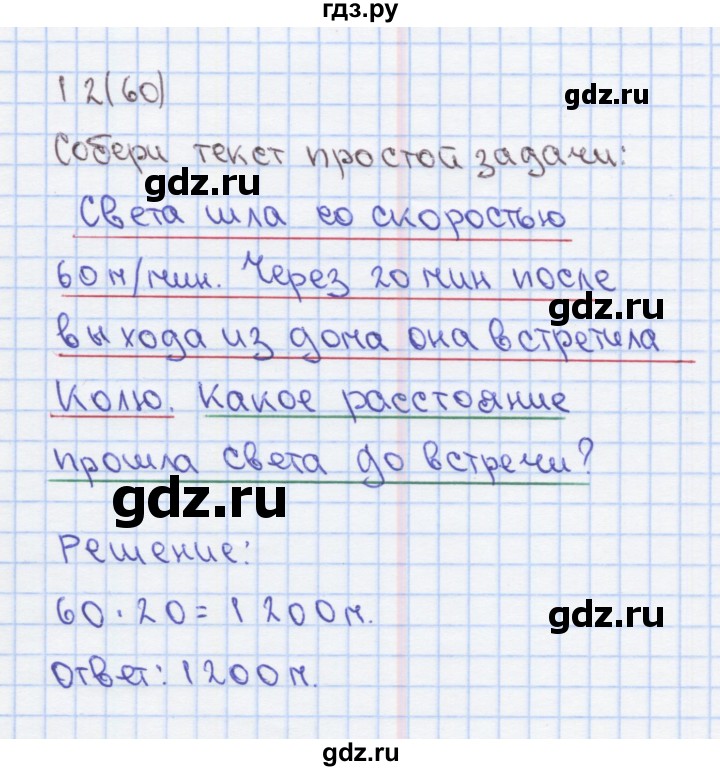 гдз.ру
12(60)
gdz.ru
Собери текст простой задачи:
gdz.ru
Света шла со скоростью
60 м/мин. Через 20 мин после
gdz.ru
выхода из дома она встретила
Колю. Какое расстояние
прошла Света до встречи?
gdz.ru
Решение:
60 · 20 = 1 200 м.
gdz.ru
Ответ: 1 200 м.
gdz.ru